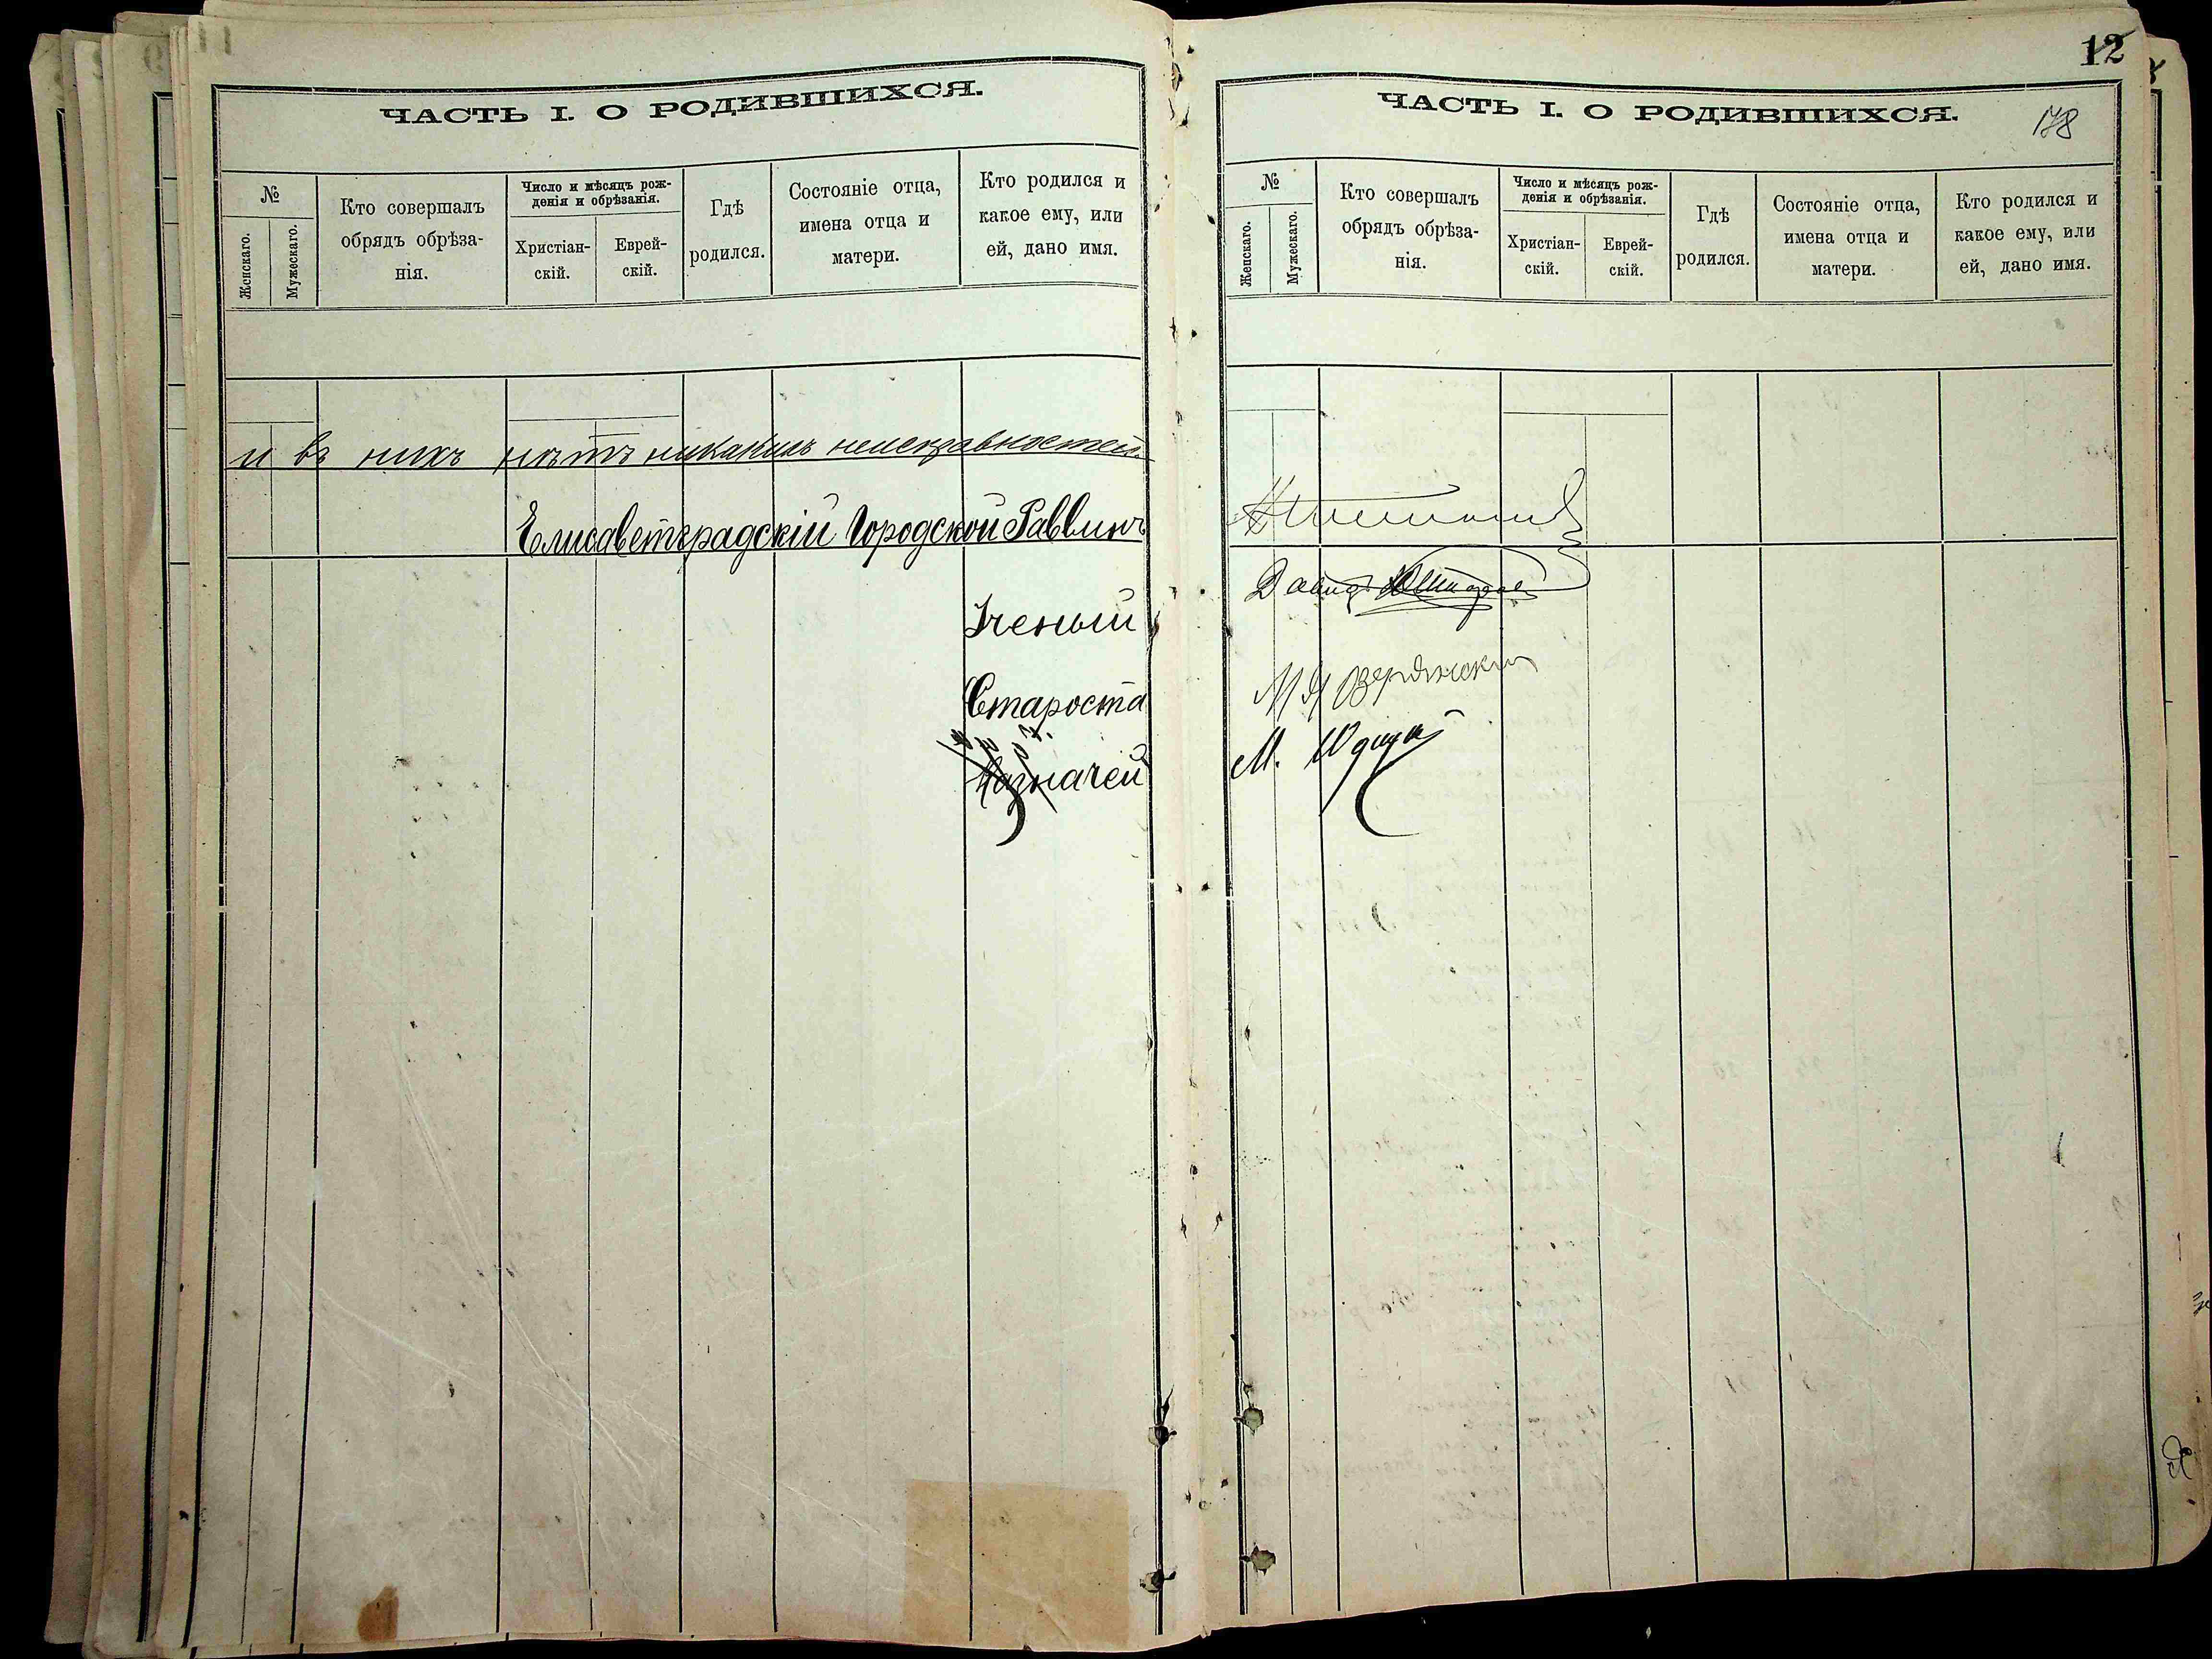 ЧАСТЬ I. О РОДИВШИХСЯ.
№
Женскаго.
Мужескаго.
Кто совершалъ
обрядъ обрѣза-
нія.
Число и мѣсяцъ рож-
денія и обрѣзанія.
Христіан-
скій.
Еврей-
скій.
Гдѣ
родился.
Состояніе отца,
имена отца и
матери.
Кто родился и
какое ему, или
ей, дано имя.
и въ нихъ нѣтъ никакихъ неисправностей.
Елисаветградскій Городской Раввинъ
Ученый
Староста
Казначей
12
178
ЧАСТЬ I. О РОДИВШИХСЯ.
№
Женскаго.
Мужескаго.
Кто совершалъ
обрядъ обрѣза-
нія.
Число и мѣсяцъ рож-
денія и обрѣзанія.
Христіан-
скій.
Еврей-
скій.
Гдѣ
родился.
Состояніе отца,
имена отца и
матери.
Кто родился и
какое ему, или
ей, дано имя.
Давид
М.